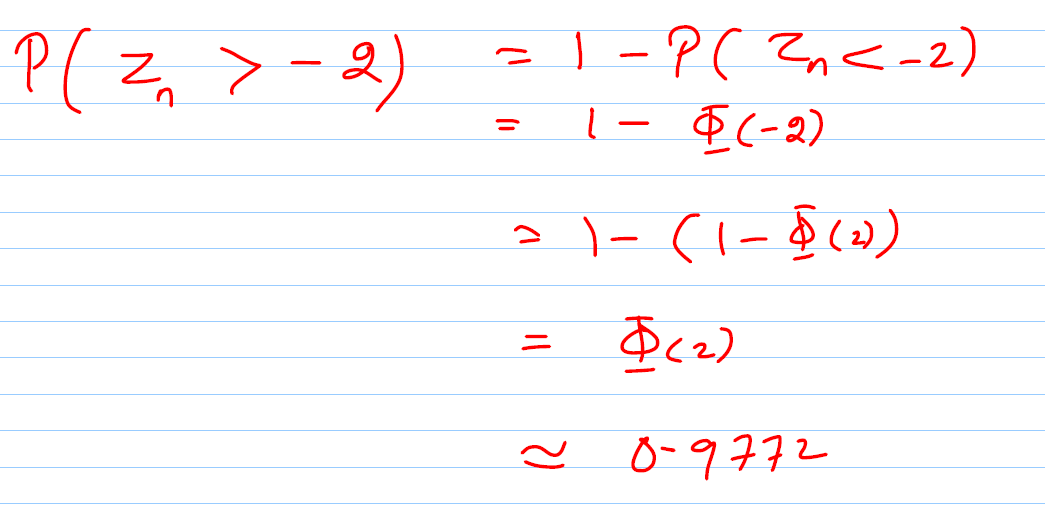 P( Zₙ > -2) = 1 - P( Zₙ < -2)
= 1 - Φ(-2)
= 1 - (1 - Φ(2))
= Φ(2)
≈ 0-9772